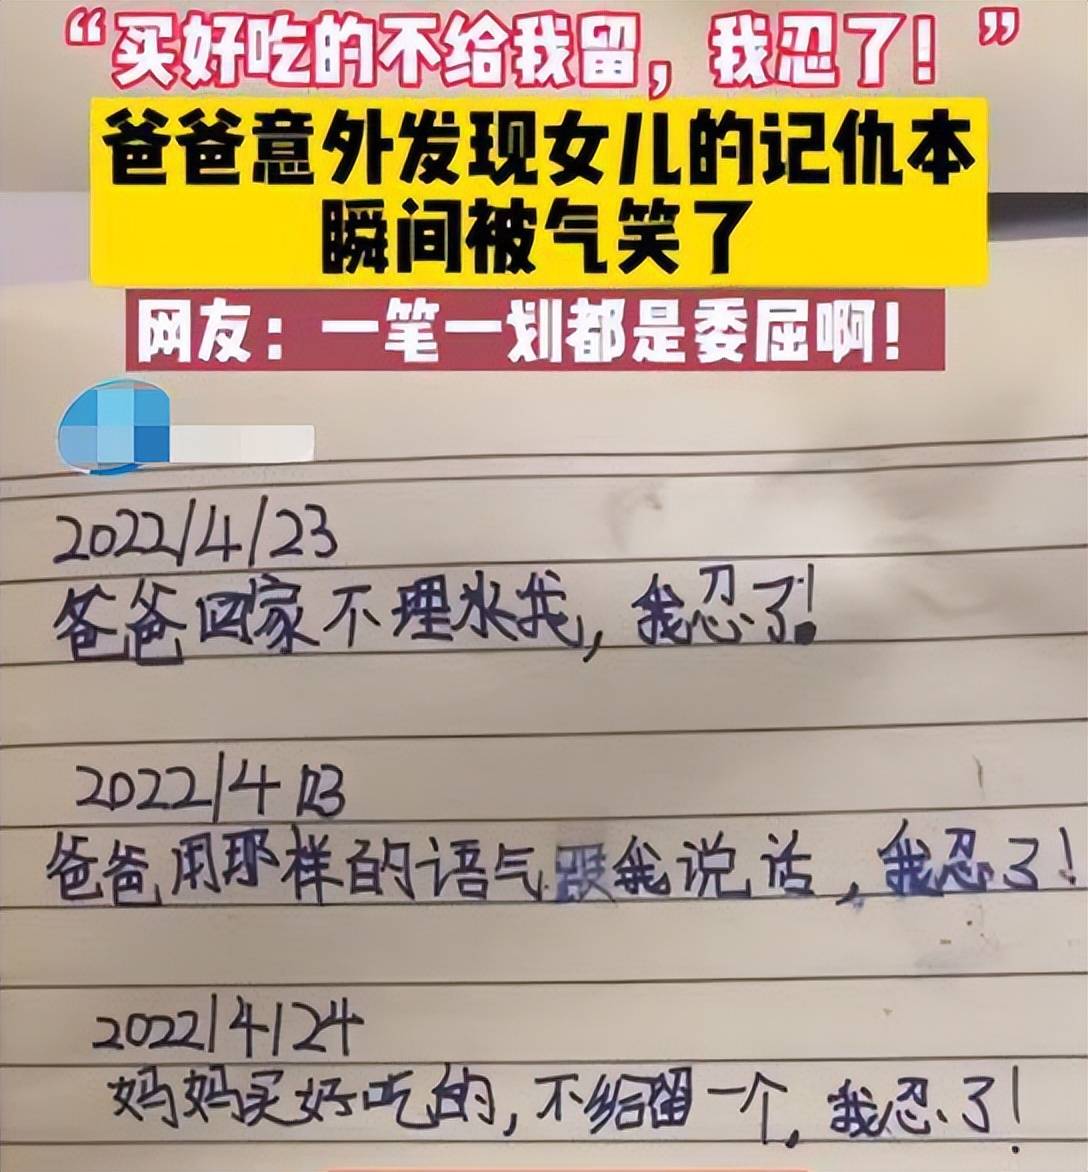 “买好吃的不给我留，我忍了！”
爸爸意外发现女儿的记仇本
瞬间被气笑了
网友：一笔一划都是委屈啊！
2022/4/23
爸爸回家不理睬我，我忍了！
2022/4/23
爸爸用那样的语气跟我说话，我忍了！
2022/4/24
妈妈买好吃的，不给留一个，我忍了！